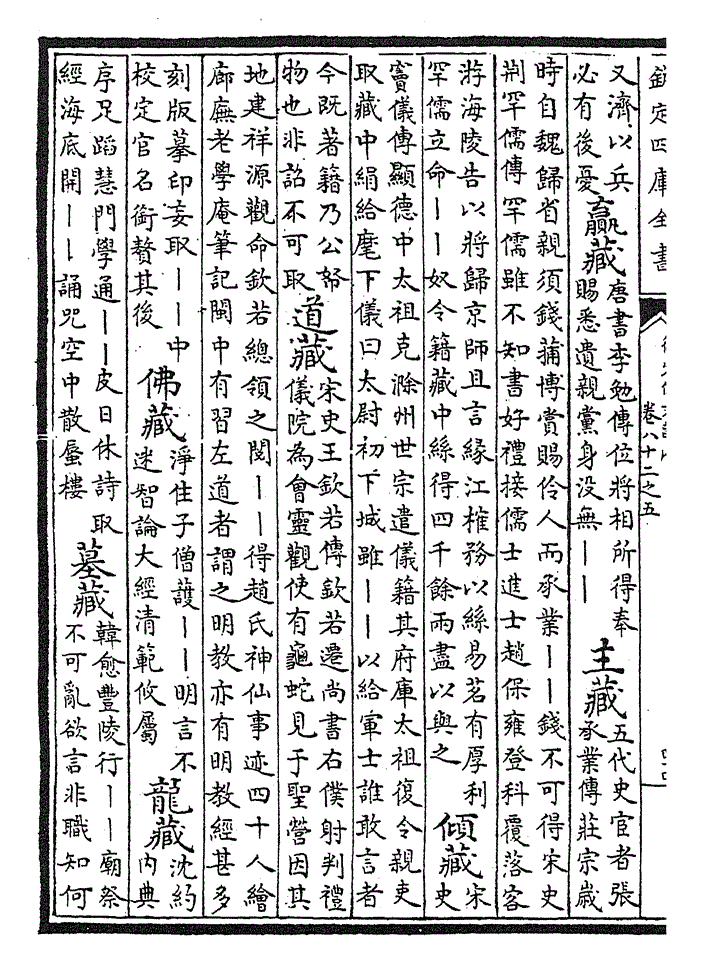 欽定四庫全書
卷八十二之五
又濟以兵
必有後憂
羸藏
唐書李勉傳位將相所得奉
賜悉遺親黨身没無丨丨
主藏
五代史宦者張
承業傳莊宗歳
時自魏歸省親須錢蒲博賞賜伶人而承業丨丨錢不可得宋史
荆罕儒傳罕儒雖不知書好禮接儒士進士趙保雍登科覆落客
游海陵告以將歸京師且言緣江榷務以絲易茗有厚利
罕儒立命丨丨奴令籍藏中絲得四千餘兩盡以與之
傾藏
宋
史
竇儀傳顯德中太祖克滁州世宗遣儀籍其府庫太祖復令親吏
取藏中絹給麾下儀曰太尉初下城雖丨丨以給軍士誰敢言者
今既著籍乃公帑
物也非詔不可取
道藏
宋史王欽若傳欽若遷尚書右僕射判禮
儀院為會靈觀使有龜蛇見于聖營因其
地建祥源觀命欽若總領之閱丨丨得趙氏神仙事迹四十人繪
廊廡老學庵筆記閩中有習左道者謂之明教亦有明教經甚多
刻版摹印妄取丨丨中
校定官名銜贅其後
佛藏
淨住子僧護丨丨明言不
迷智論大經清範攸屬
龍藏
沈約
内典
序足蹈慧門學通丨丨皮日休詩取
經海底開丨丨誦咒空中散蜃樓
墓藏
韓愈豐陵行丨丨廟祭
不可亂欲言非職知何